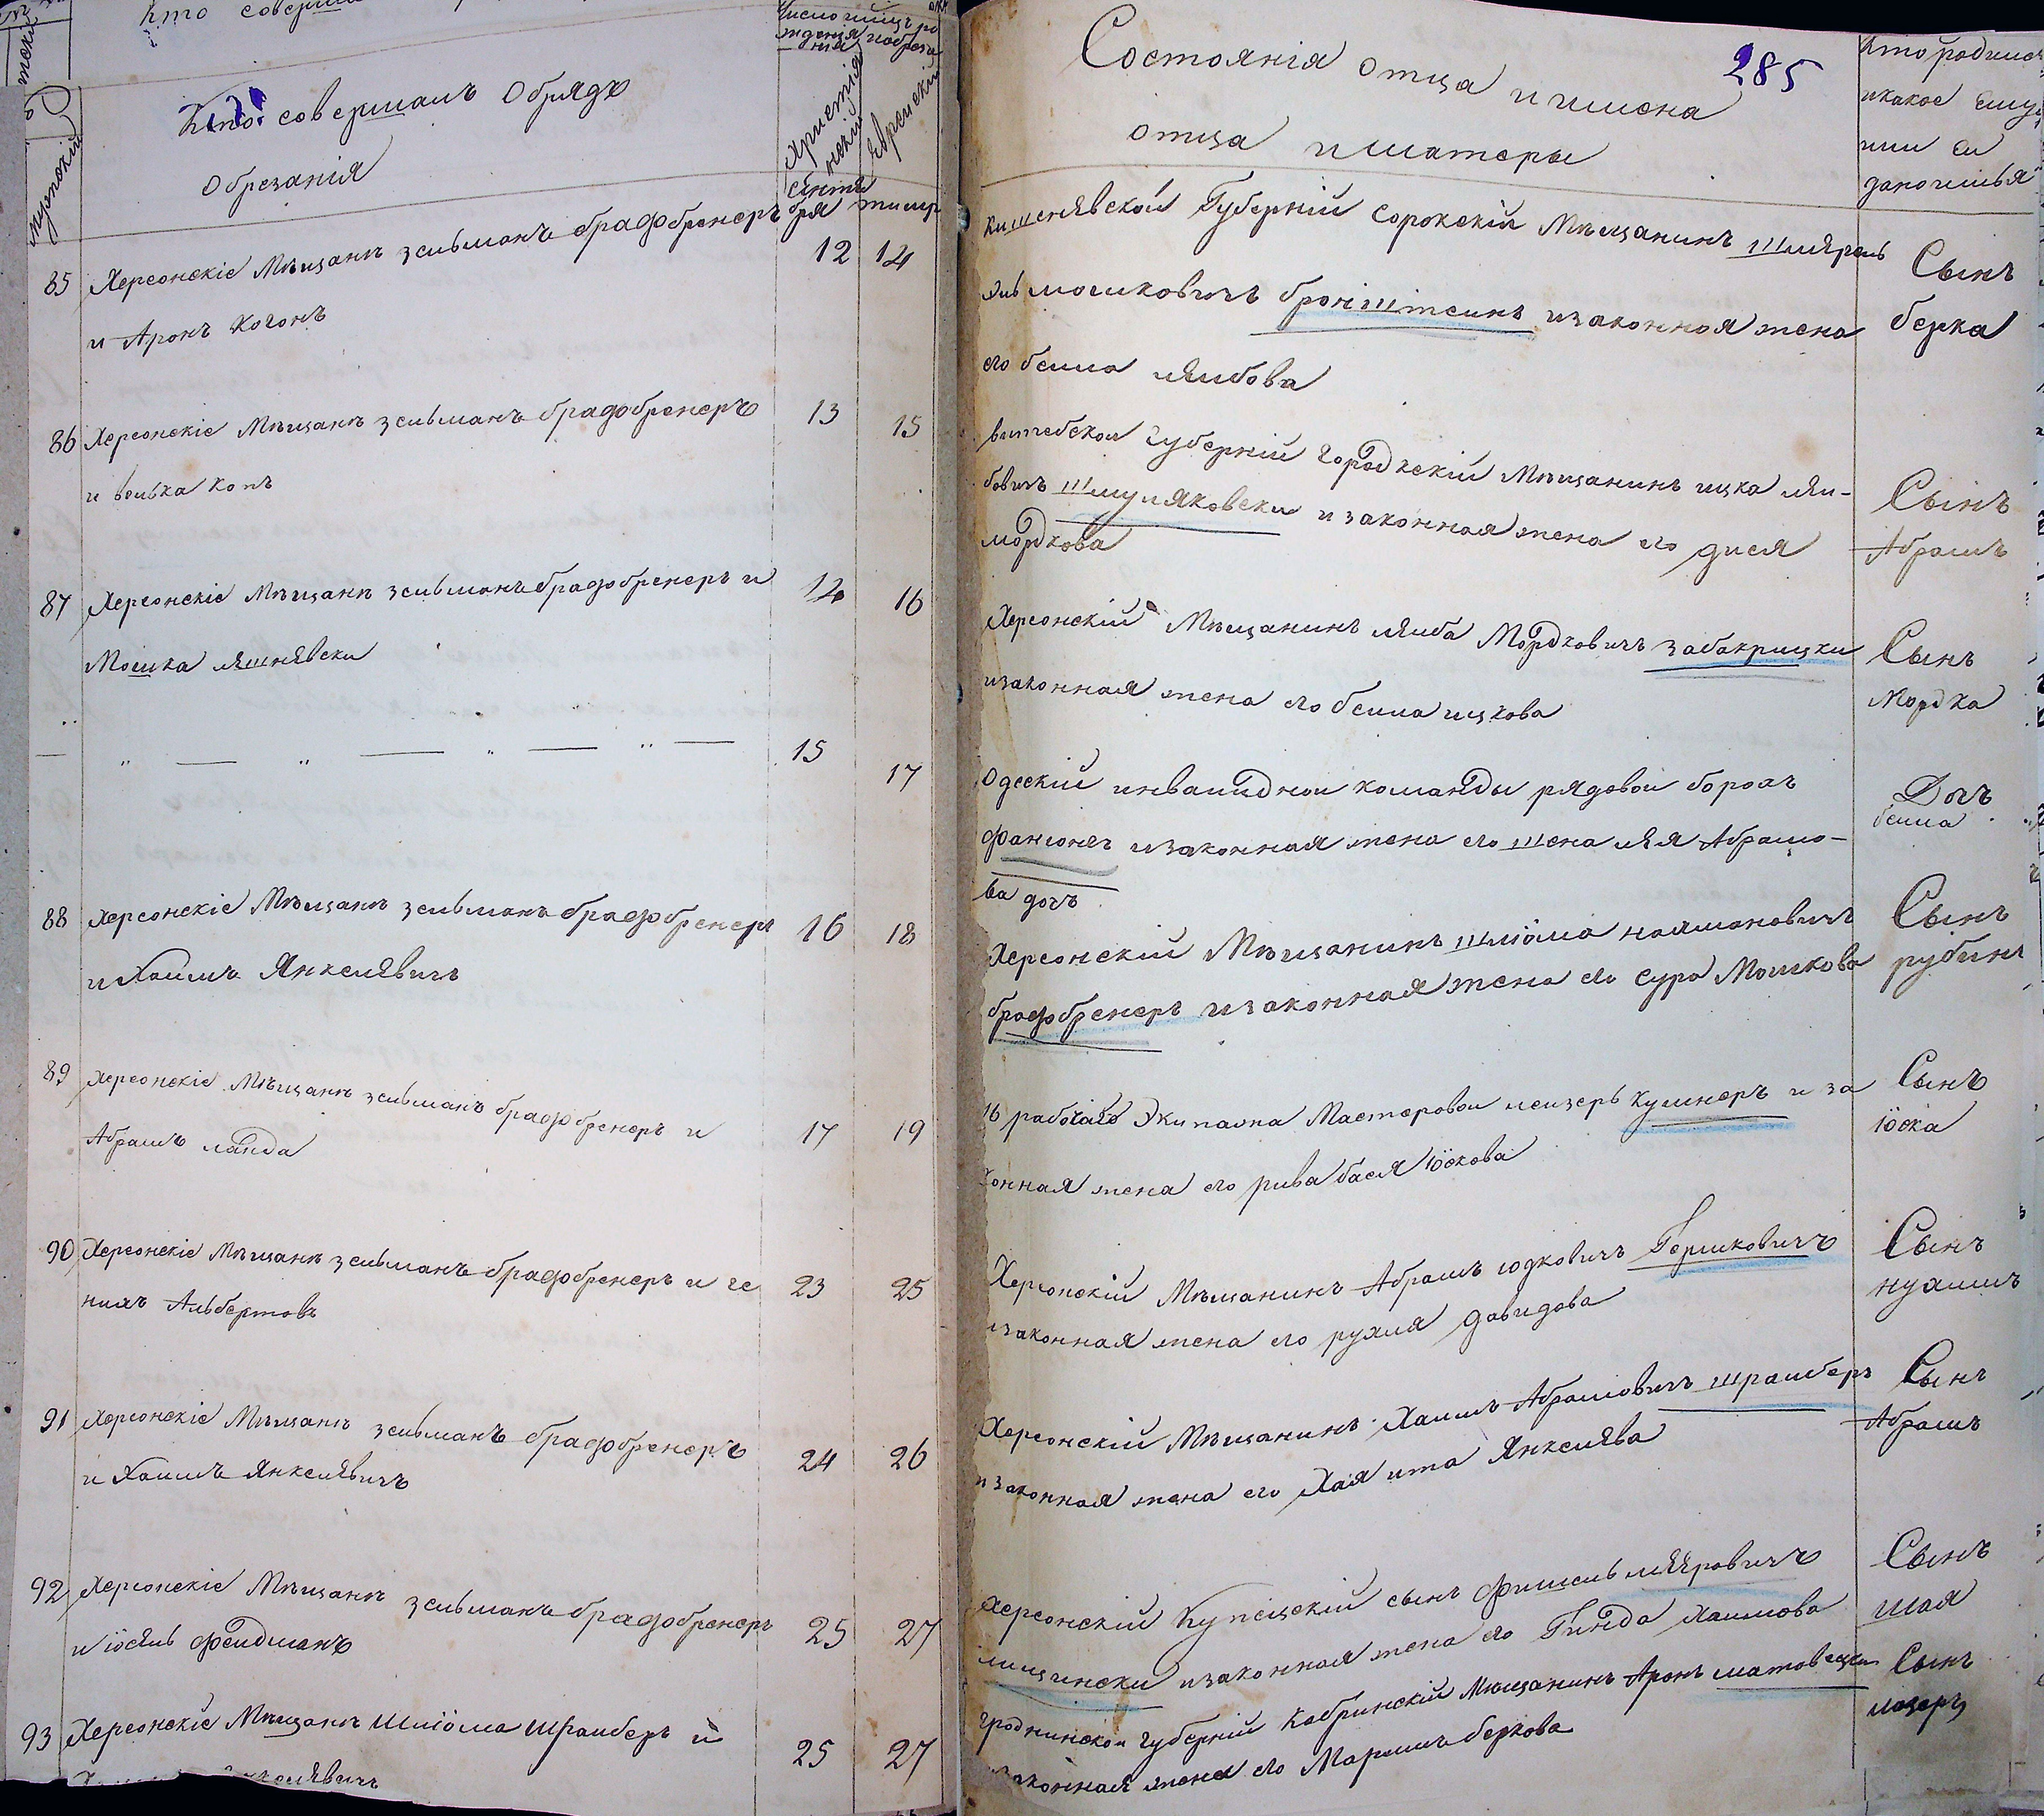 Кто совершалъ Обрядъ
Обрезанія
мужскій
Христіянскій
Еврейскій
сентября
тишре
85 Херсонскіе Мѣщанѣ зельманъ брадобренеръ 12 14
и Аронъ Когонъ
86 Херсонскіе Мѣщанѣ зельманъ брадобренеръ 13 15
и волька копъ
87 Херсонскіе Мѣщанѣ зельманъ брадобренеръ и 14 16
Мошка ляшнявски
— " — " — " — " — 15 17
88 Херсонскіе Мѣщанѣ зельманъ брадобренеръ 16 18
и Хаимъ Янкелявичъ
89 Херсонскіе Мѣщанѣ зельманъ брадобренеръ и 17 19
Абрамъ ланда
90 Херсонскіе Мѣщанѣ зельманъ брадобренеръ и че 23 25
нихъ Альбертовъ
91 Херсонскіе Мѣщанѣ зельманъ брадобренеръ 24 26
и Хаимъ Янкелявичъ
92 Херсонскіе Мѣщанѣ зельманъ брадобренеръ 25 27
и іосяль фелдманъ
93 Херсонскіе Мѣщанѣ Шліома Шраиберъ и 25 27
285
Состоянія отца и имена
отца и матеры
Кто родился
икакое ему
или еи
кишенявской Губерній сорокскій Мѣщанинъ шмярель
мошковичъ бронштеинъ изаконноя жена
его беила ляибова
Сынъ
берка
витебскои губерній городкскій Мѣщанинъ ицка ляи-
бовичъ шмуляковски и законная жена его дися
мордкова
Сынъ
Абрамъ
Херсонскій Мѣщанинъ ляиба Мордковичъ забакрицки
изаконная жена его беила ицкова
Сынъ
Мордка
Одескій инвалиднои команды рядовои борохъ
фангонъ изаконная жена его шена лЯя Абрамо-
ва дочъ
Дочъ
беила
Херсонскій Мѣщанинъ шліома нахмановичъ
брадобренеръ изаконная жена его сура Мошкова
Сынъ
рубинъ
16 рабочаго Экипажа Мастеровои леизеръ кушнеръ и за
конная жена его рива бася іоскова
Сынъ
іоска
Херсонскій Мѣщанинъ Абрамъ юдковичъ Гершковичъ
изаконная жена его рухля давидова
Сынъ
нухимъ
Херсонскій Мѣщанинъ Хаимъ Абрамовичъ шраиберъ
изаконная жена его Хая ита Янкелява
Сынъ
Абрамъ
Херсонскій купецскій сынъ фишель мяяровичъ
лищински изаконноя жена его Гинда хаимова
Сынъ
шая
гродненскои губерній Кобринскій Мѣщанинъ Аронъ матовецки
изаконная жена его Маримъ беркова
Сынъ
лазеръ